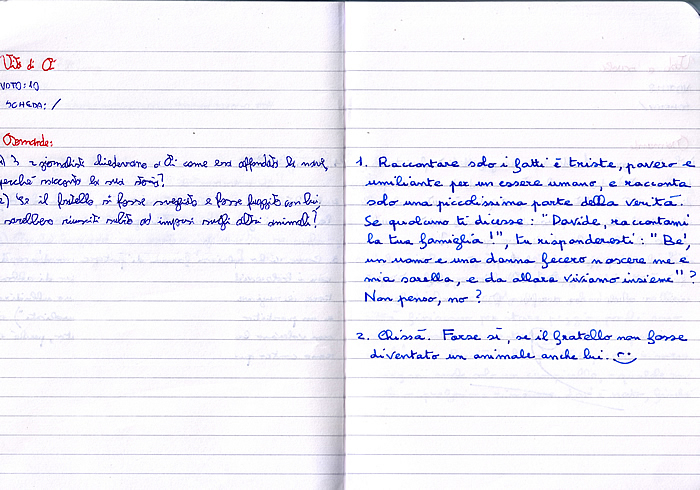 Vita di Pi
VOTO: 10
SCHEDA: /
Domande:
1) I 2 giornalisti chiedevano a Pi come era affondata la nave,
perché racconta la sua storia?
2) Se il fratello si fosse svegliato e fosse fuggito con lui,
sarebbero riusciti subito ad imporsi sugli altri animali?
1. Raccontare solo i fatti è triste, povero e
umiliante per un essere umano, e racconta
solo una piccolissima parte della verità.
Se qualcuno ti dicesse: "Davide, raccontami
la tua famiglia!", tu risponderesti: "Be',
un uomo e una donna fecero nascere me e
mia sorella, e da allora viviamo insieme"?
Non penso, no?
2. Chissà. Forse sì, se il fratello non fosse
diventato un animale anche lui.